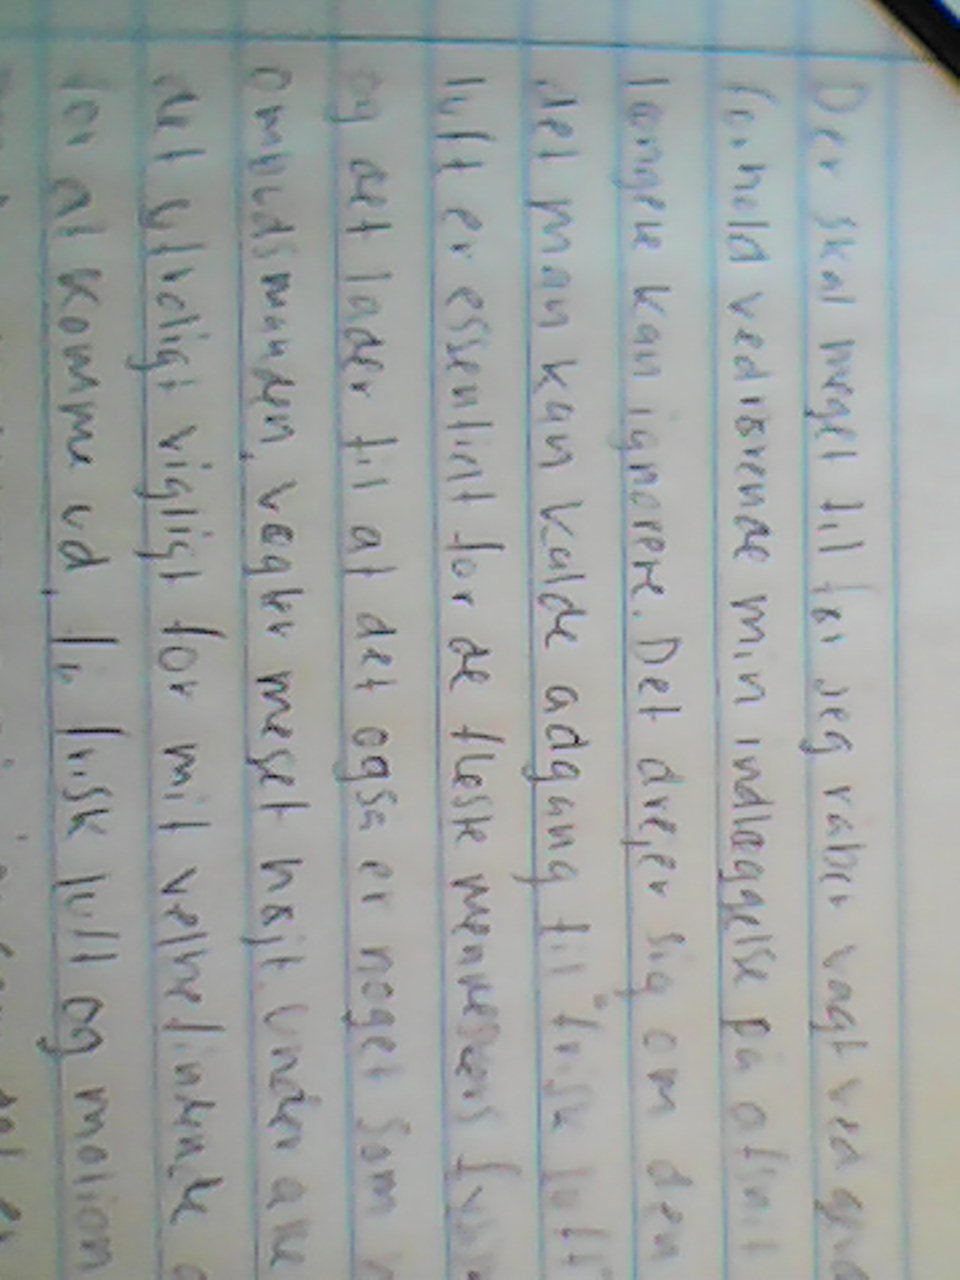 Der skal meget til før jeg råber vagt ved
forhold vedrørende min indlæggelse på afsnit
længere kan ignorere. Det drejer sig om den
det man kan kalde adgang til "frisk luft"
luft er essentielt for de fleste menneskers
og det lader til at det også er noget som
ombudsmanden, vægter meget højt. Under alle
det yderligt vigtigt for mit velbefindende
for at komme ud, få frisk luft og motion